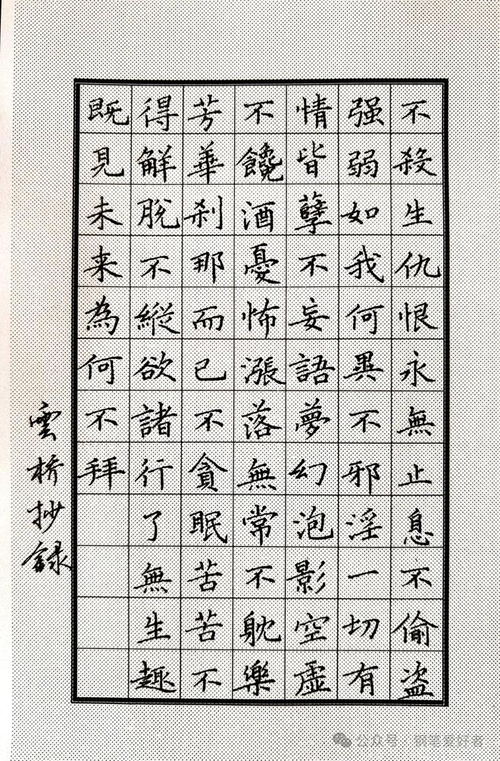 不殺生仇恨永無止息不偷盜
强弱如我何異不邪淫一切有
情皆孽不妄語夢幻泡影空虛
不饞酒憂怖漲落無常不耽樂
芳華刹那而已不貪眠苦苦不
得解脫不縱欲諸行了無生趣
既見未来為何不拜
雲橋抄録
公众号 · 钢笔爱好者